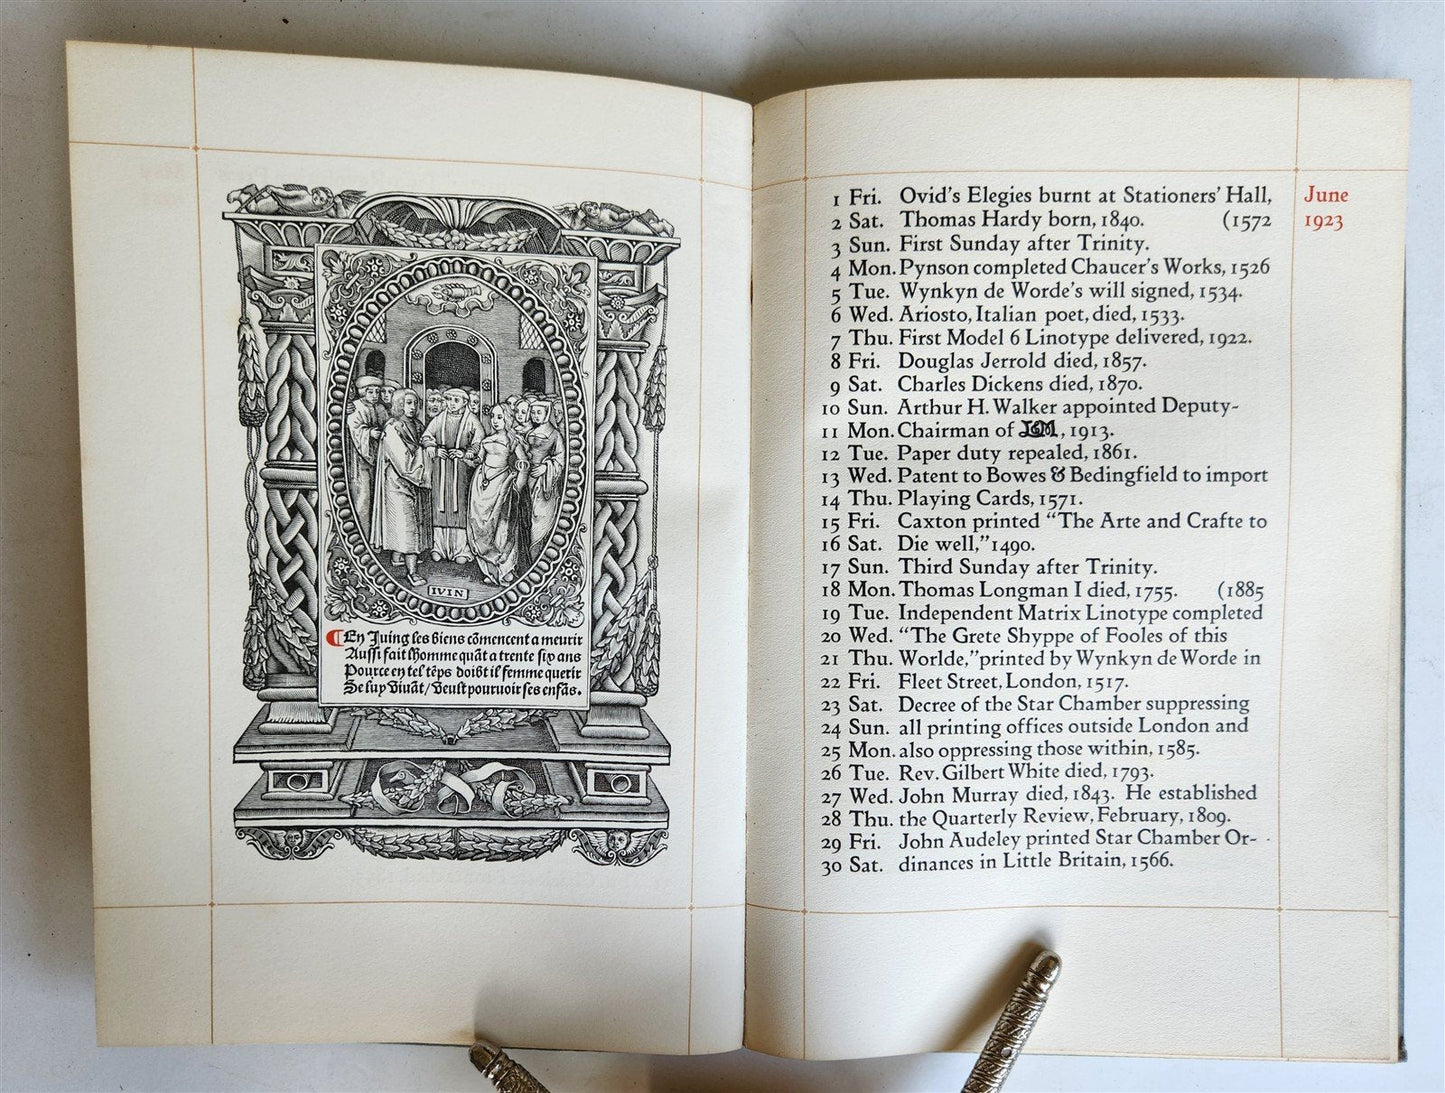 IVIN
¶En Juing les biens cõmencent a meurir
Aussi fait lhomme quãt a trente six ans
Pource en tel tẽps doibt il femme querir
Se luy viuãt/veult pouruoir ses enfãs.
June
1923
1 Fri. Ovid's Elegies burnt at Stationers' Hall,
2 Sat. Thomas Hardy born, 1840. (1572
3 Sun. First Sunday after Trinity.
4 Mon. Pynson completed Chaucer's Works, 1526
5 Tue. Wynkyn de Worde's will signed, 1534.
6 Wed. Ariosto, Italian poet, died, 1533.
7 Thu. First Model 6 Linotype delivered, 1922.
8 Fri. Douglas Jerrold died, 1857.
9 Sat. Charles Dickens died, 1870.
10 Sun. Arthur H. Walker appointed Deputy-
11 Mon. Chairman of L&M, 1913.
12 Tue. Paper duty repealed, 1861.
13 Wed. Patent to Bowes & Bedingfield to import
14 Thu. Playing Cards, 1571.
15 Fri. Caxton printed “The Arte and Crafte to
16 Sat. Die well,” 1490.
17 Sun. Third Sunday after Trinity.
18 Mon. Thomas Longman I died, 1755. (1885
19 Tue. Independent Matrix Linotype completed
20 Wed. “The Grete Shyppe of Fooles of this
21 Thu. Worlde,” printed by Wynkyn de Worde in
22 Fri. Fleet Street, London, 1517.
23 Sat. Decree of the Star Chamber suppressing
24 Sun. all printing offices outside London and
25 Mon. also oppressing those within, 1585.
26 Tue. Rev. Gilbert White died, 1793.
27 Wed. John Murray died, 1843. He established
28 Thu. the Quarterly Review, February, 1809.
29 Fri. John Audeley printed Star Chamber Or-
30 Sat. dinances in Little Britain, 1566.